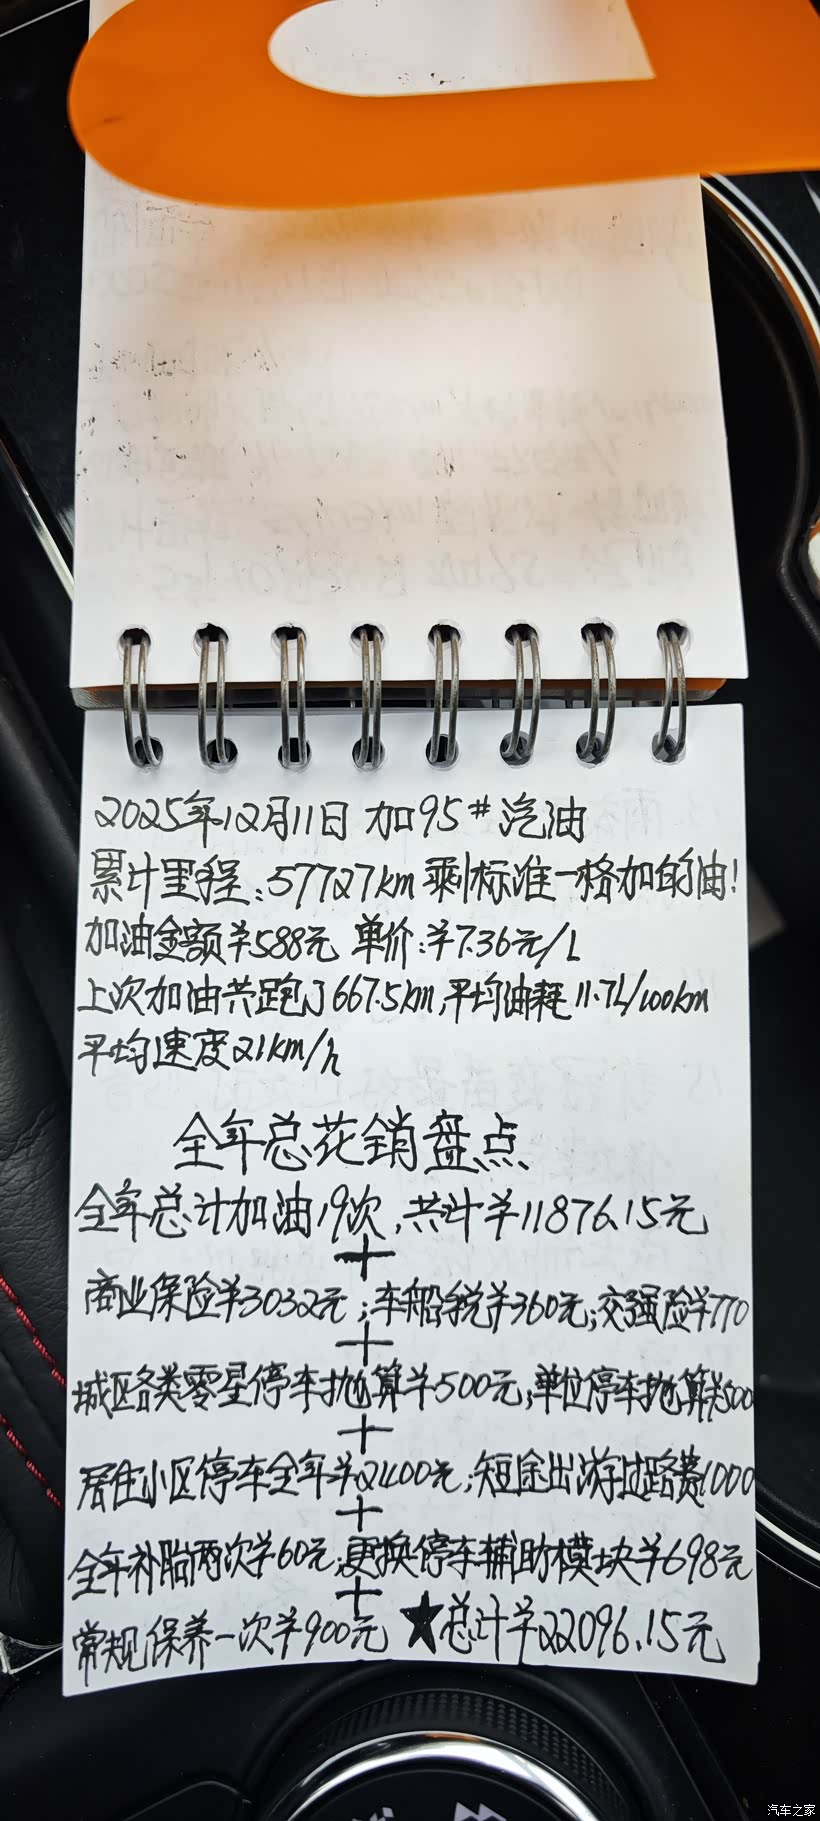 2025年12月11日 加95#汽油
累计里程:57727km 剩标准一格加的油!
加油金额¥588元 单价:¥7.36元/L
上次加油共跑了667.5km,平均油耗11.7L/100km
平均速度21km/h
全年总花销盘点
全年总计加油19次,共计¥11876.15元
+
商业保险¥3032元;车船税¥360元;交强险¥770
+
城区各类零星停车抛算¥500元;单位停车抛算¥500
+
居住小区停车全年¥2400元;短途出游过路费1000
+
全年补胎两次¥60元,更换停车辅助模块¥698元
+
常规保养一次¥900元 ★总计¥22096.15元
汽车之家